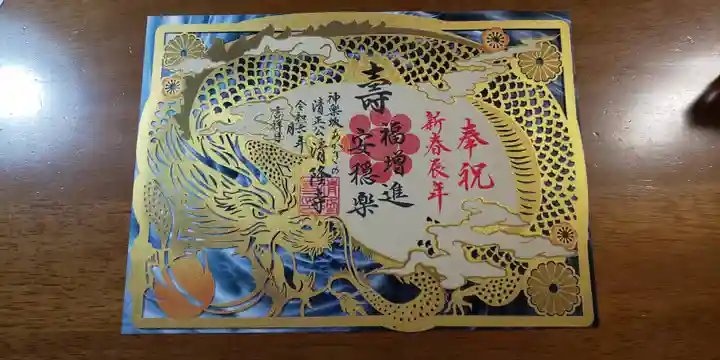 奉祝
新春辰年
福増進
安穏楽
壽
神楽坂あかぎの
清正公清隆寺
令和六年 月